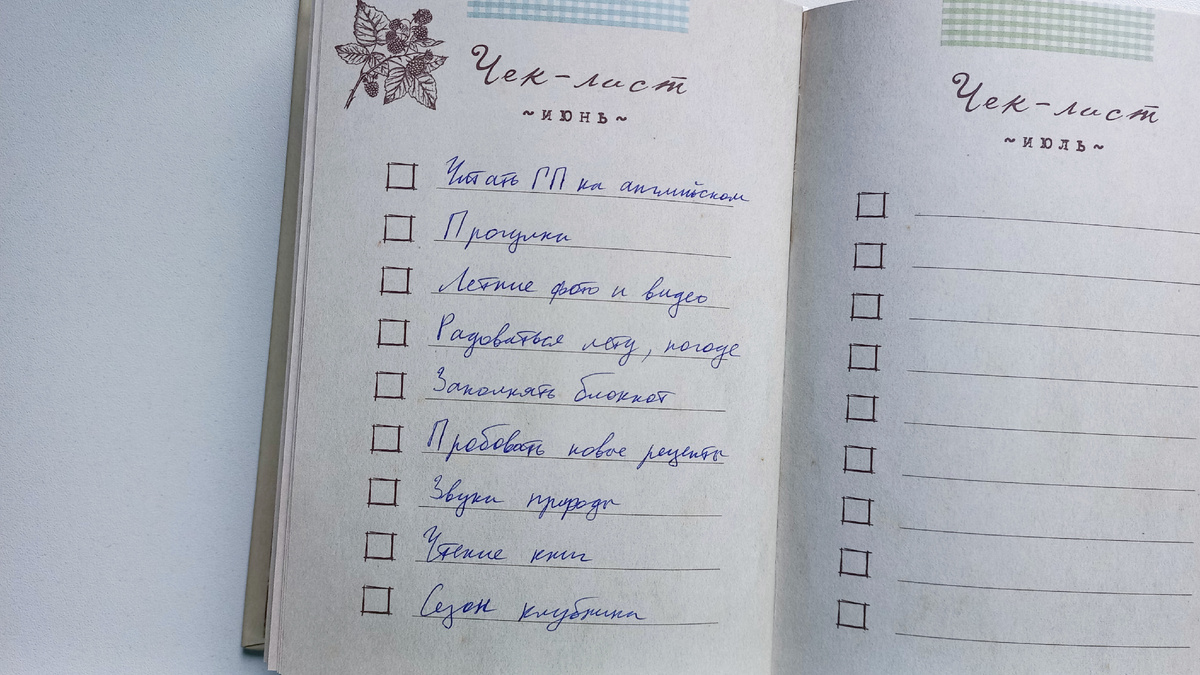 Чек-лист
~июнь~
Читать ГП на английском
Прогулки
Летние фото и видео
Радоваться лету, погоде
Заполнять блокнот
Пробовать новые рецепты
Звуки природы
Чтение книг
Сезон клубники
Чек-лист
~июль~